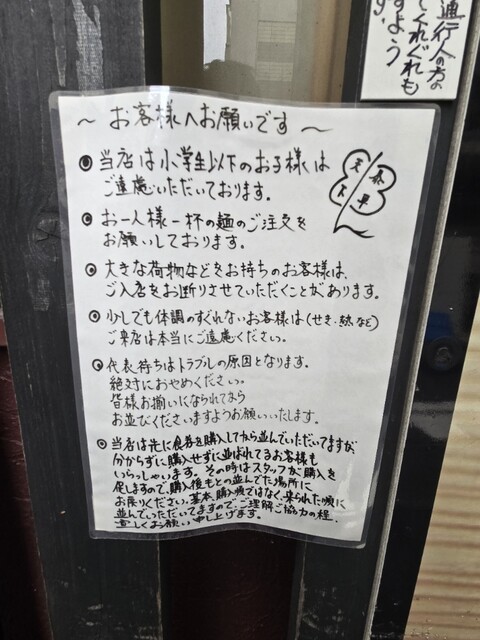 通行人の方の
くれぐれも
ますよう
〜 お客様へお願いです 〜
◉ 当店は小学生以下のお子様は
ご遠慮いただいております。
◉ お一人様一杯の麺のご注文を
お願いしております。
◉ 大きな荷物などをお持ちのお客様は、
ご入店をお断りさせていただくことがあります。
◉ 少しでも体調のすぐれないお客様は(せき、熱など)
ご来店は本当にご遠慮ください。
◉ 代表待ちはトラブルの原因となります。
絶対におやめください。
皆様お揃いになられてから
お並びくださいますようお願いいたします。
◉ 当店は先に食券を購入してから並んでいただいてますが
分からずに購入せずに並ばれてるお客様も
いらっしゃいます。その時はスタッフが購入を
促しますので、購入後もとの並んでた場所に
お戻りください。基本、購入順ではなく、来られた順に
並んでいただいてますので、ご理解ご協力の程、
宜しくお願い申し上げます。